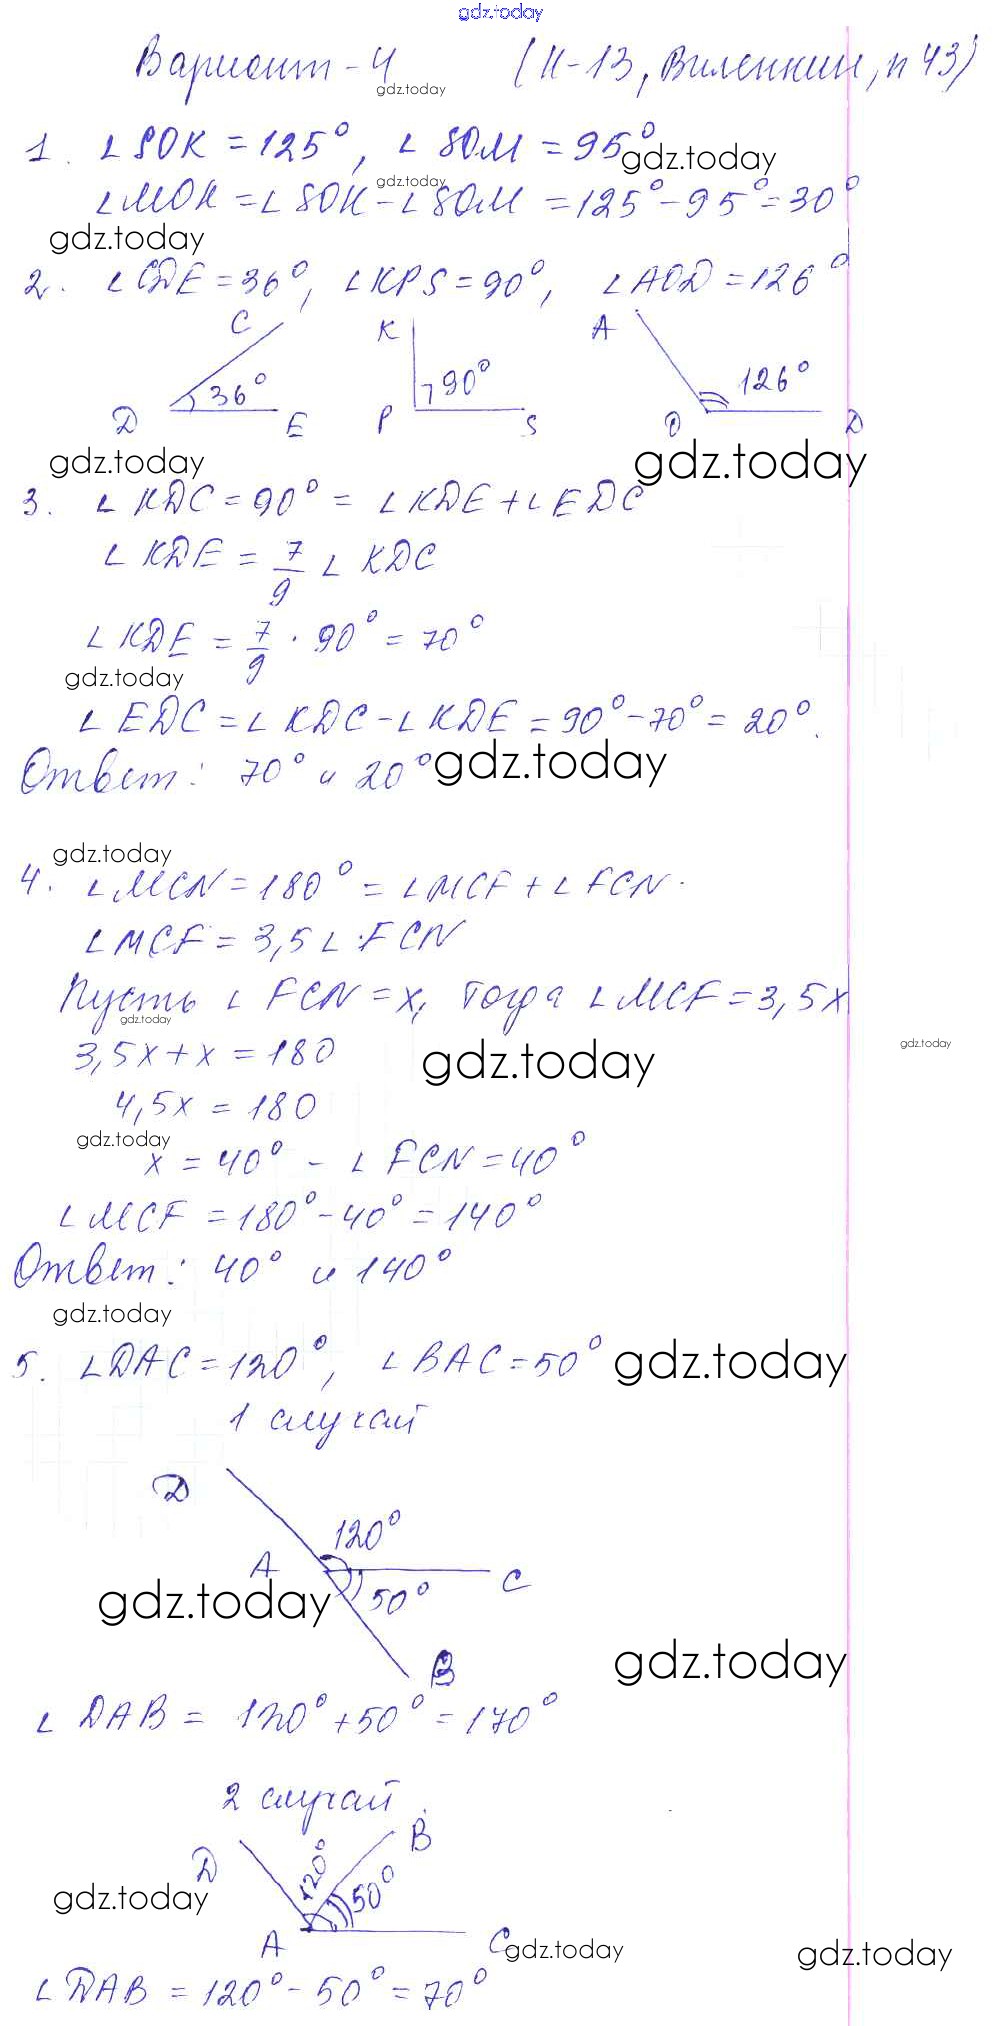 gdz.today
Вариант-4 (К-13, Виленкин, п 43)
gdz.today
1. ∠SOK = 125°, ∠SOM = 95°
gdz.today
gdz.today
∠MOK = ∠SOK - ∠SOM = 125° - 95° = 30°
gdz.today
2. ∠CDE = 36°, ∠KPS = 90°, ∠AOD = 126°
C K A
36° 90° 126°
D E P S O D
gdz.today gdz.today
3. ∠KDC = 90° = ∠KDE + ∠EDC
∠KDE = 7/9 ∠KDC
∠KDE = 7/9 · 90° = 70°
gdz.today
∠EDC = ∠KDC - ∠KDE = 90° - 70° = 20°.
Ответ: 70° и 20°
gdz.today
gdz.today
4. ∠MCN = 180° = ∠MCF + ∠FCN.
∠MCF = 3,5 ∠FCN
Пусть ∠FCN = x, тогда ∠MCF = 3,5x
gdz.today
3,5x + x = 180
gdz.today gdz.today
4,5x = 180
gdz.today
x = 40° - ∠FCN = 40°
∠MCF = 180° - 40° = 140°
Ответ: 40° и 140°
gdz.today
5. ∠DAC = 120°, ∠BAC = 50°
gdz.today
1 случай
D
120°
A C
50°
gdz.today
gdz.today
B
∠DAB = 120° + 50° = 170°
2 случай.
B
D 120° 50°
gdz.today
A C
gdz.today gdz.today
∠DAB = 120° - 50° = 70°